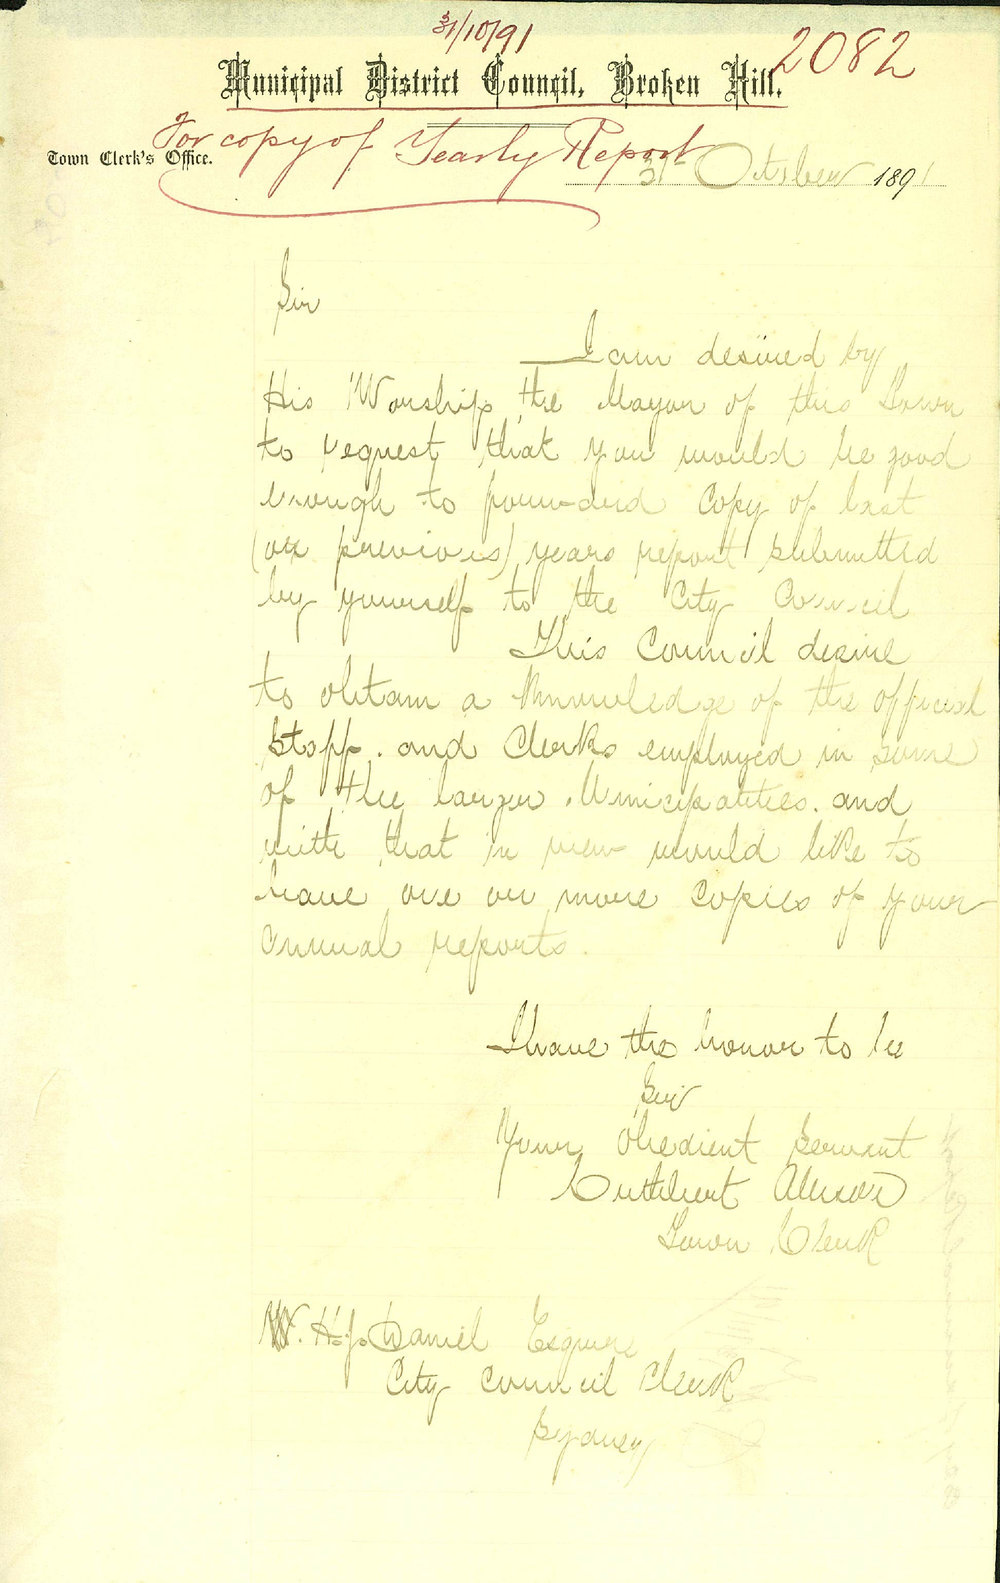 31/10/91
2082
Municipal District Council, Broken Hill.
For copy of Yearly Report
Town Clerk's Office.
31st October 1891
Sir
I am desired by
His Worship the Mayor of this Town
to request that you would be good
enough to forward copy of last
(or previous) years report submitted
by yourself to the City Council
This Council desire
to obtain a knowledge of the official
Staff. and Clerks employed in some
of the larger Municipalities. and
with that in view would like to
have one or more copies of your
annual reports.
I have the honor to be
Sir
Your Obedient Servant
Cuthbert
Town Clerk
W. H. J. Daniel Esquire
City Council Clerk
Sydney